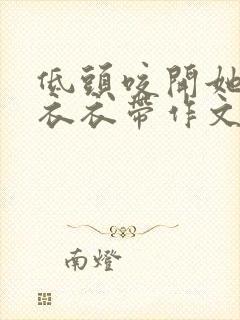 低頭咬開她
衣衣帶作文
南燈